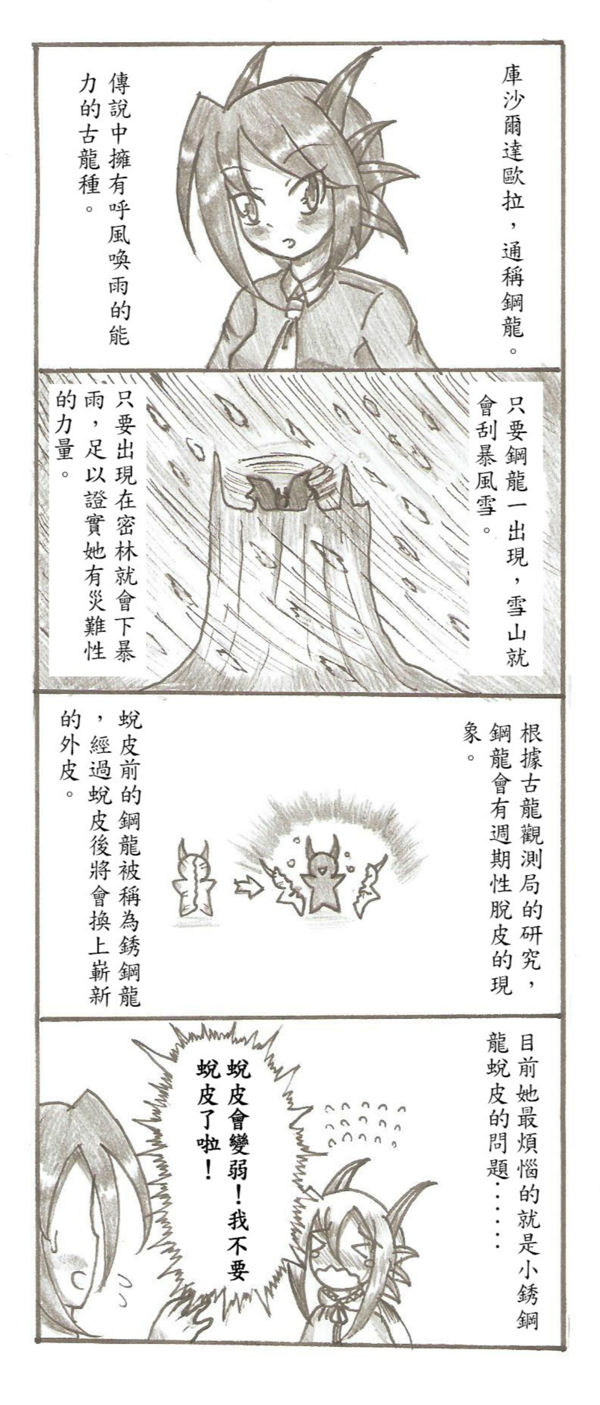 庫沙爾達歐拉，通稱鋼龍。
傳說中擁有呼風喚雨的能
力的古龍種。
只要鋼龍一出現，雪山就
會刮暴風雪。
只要出現在密林就會下暴
雨，足以證實她有災難性
的力量。
根據古龍觀測局的研究，
鋼龍會有週期性脫皮的現
象。
蛻皮前的鋼龍被稱為銹鋼龍
，經過蛻皮後將會換上嶄新
的外皮。
目前她最煩惱的就是小銹鋼
龍蛻皮的問題……
蛻皮會變弱！我不要
蛻皮了啦！